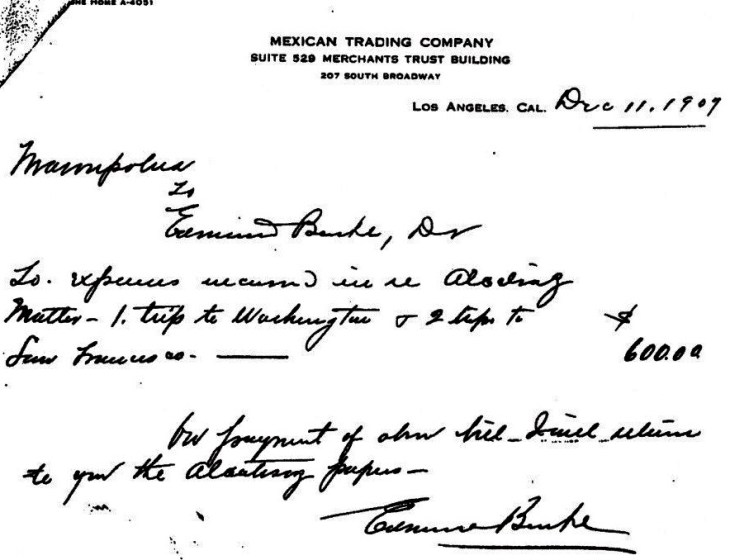 ONE HOME A-4051
MEXICAN TRADING COMPANY
SUITE 529 MERCHANTS TRUST BUILDING
207 SOUTH BROADWAY
LOS ANGELES, CAL. Dec 11, 1907
To
Edmund Burke, Dr
To. expenses incurred in re
Matter - 1. trip to Washington & 2 trips to $
San Francisco. — 600.00
On payment of above bill - I will return
to you the papers -
Edmund Burke